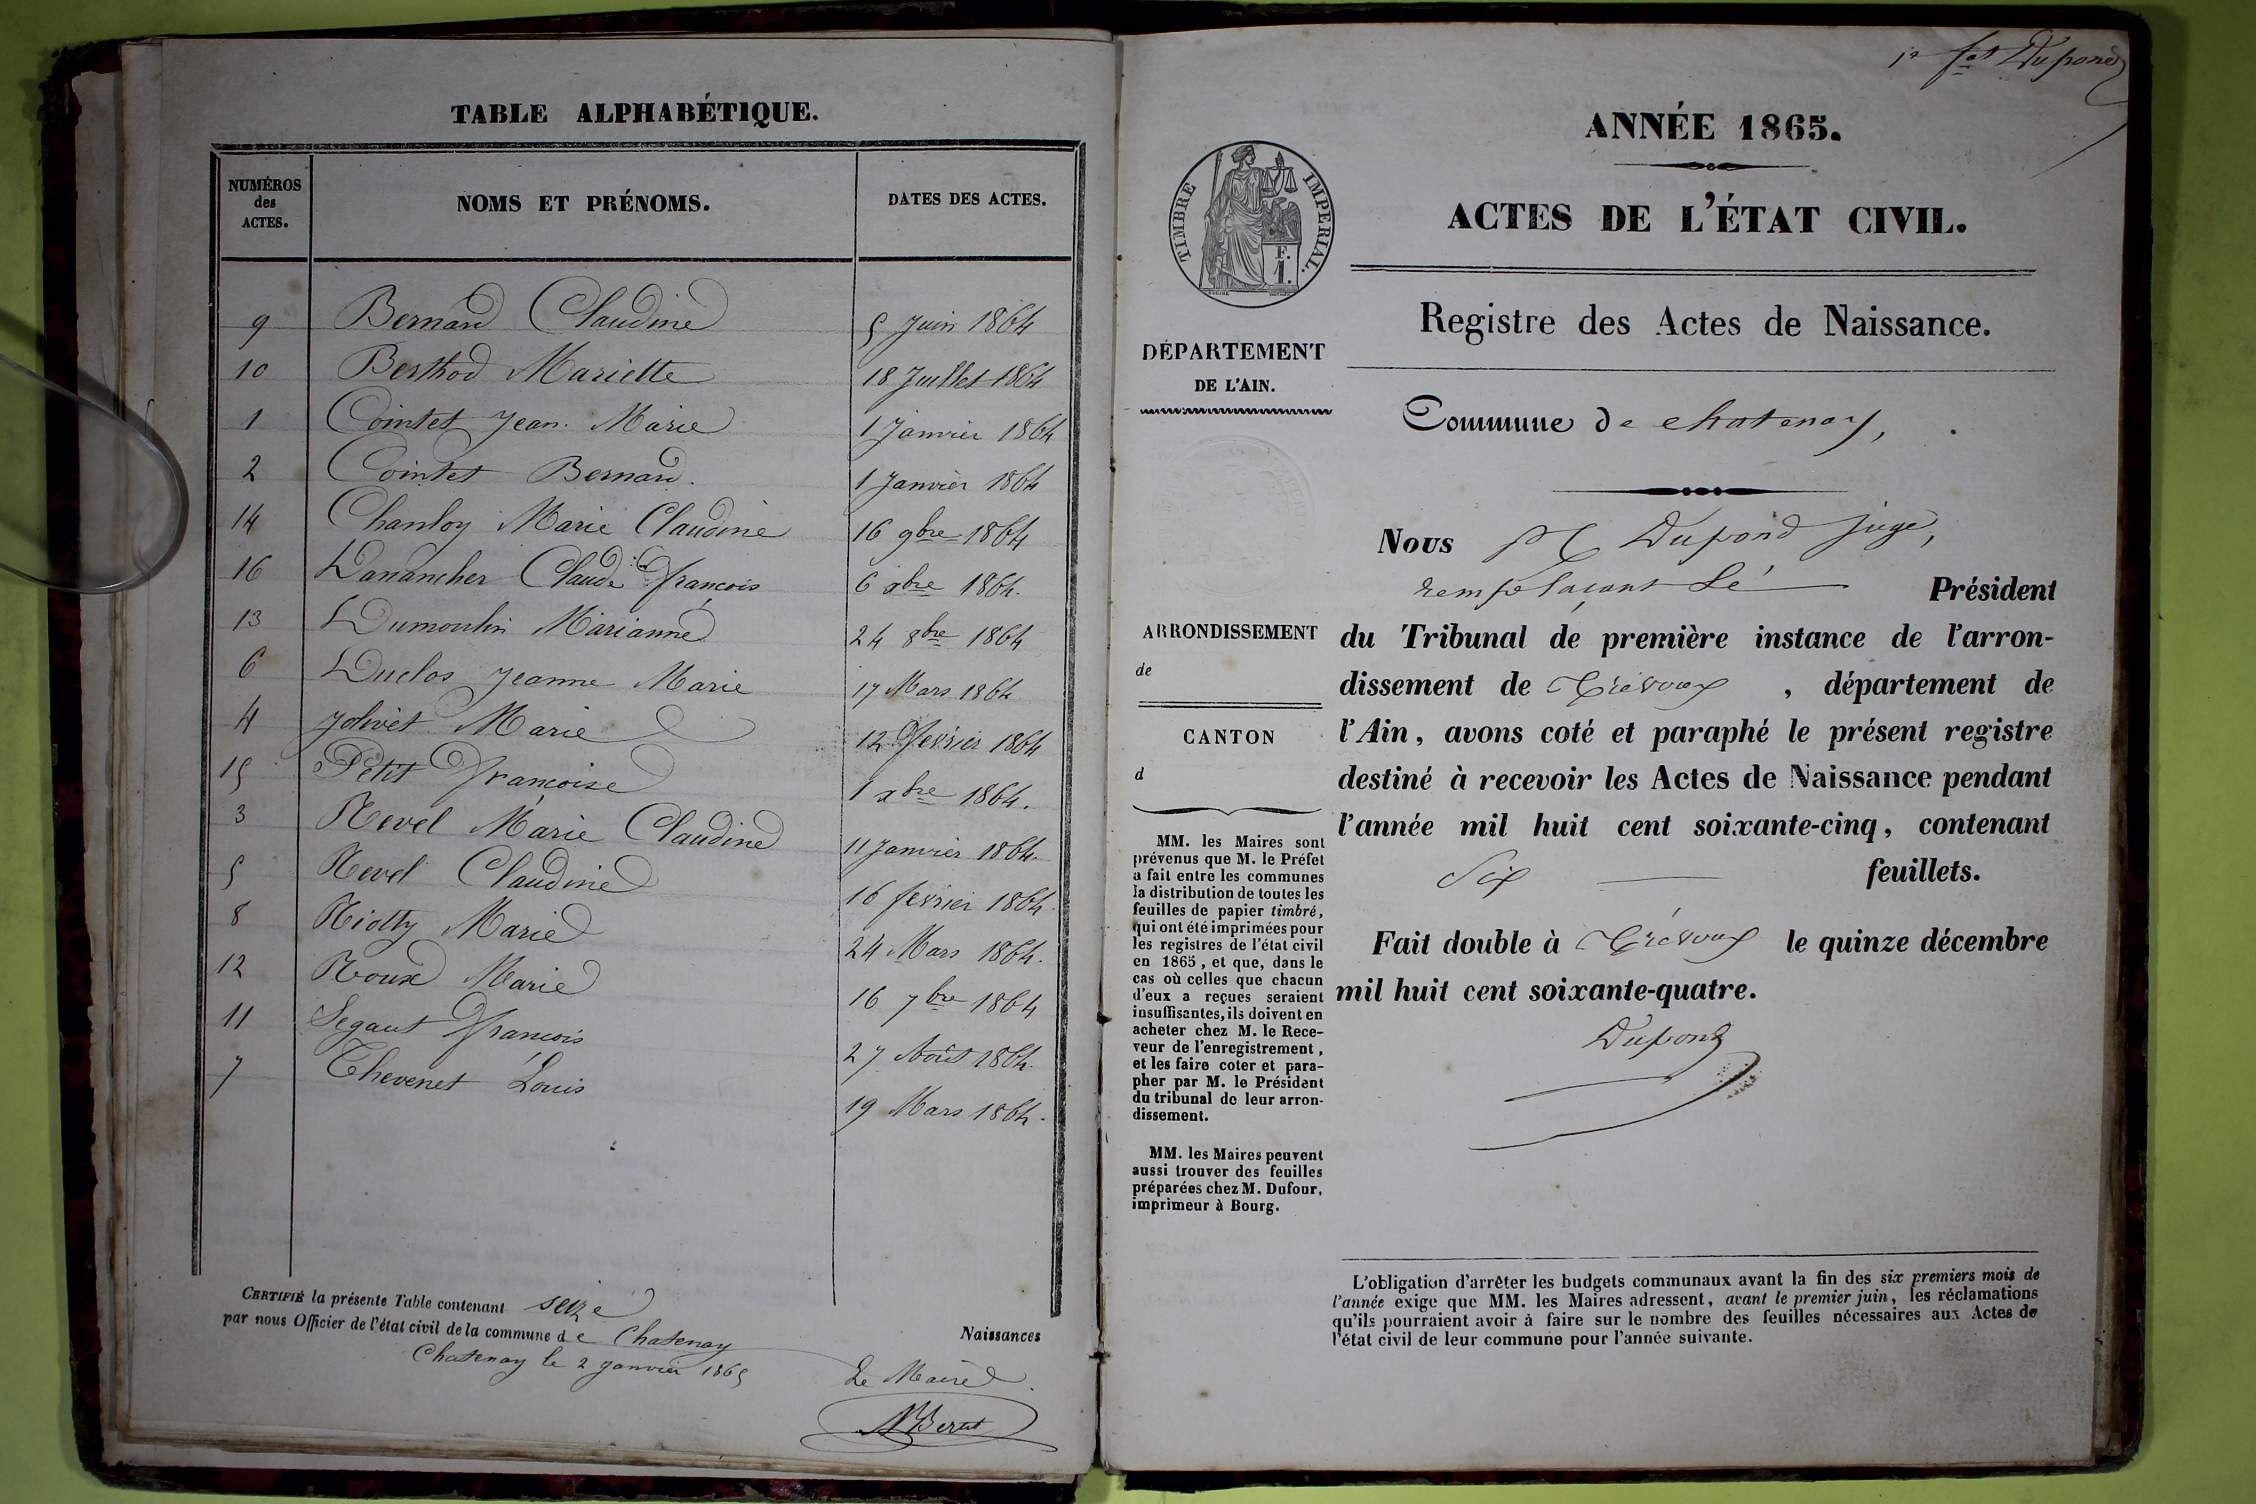 TABLE ALPHABÉTIQUE.
NUMÉROS des ACTES. NOMS ET PRÉNOMS. DATES DES ACTES.
9 Bernard Claudine 5 Juin 1864
10 Berthod Mariette 18 Juillet 1864
1 Cointet Jean Marie 1 Janvier 1864
2 Cointet Bernard. 1 Janvier 1864
14 Chanloy Marie Claudine 16 9bre 1864
16 Danancher Claude François 6 xbre 1864.
13 Dumoulin Marianne 24 8bre 1864
6 Duclos Jeanne Marie 17 Mars 1864
4 Jolivet Marie 12 Février 1864
15 Petit Françoise 1 xbre 1864.
3 Revel Marie Claudine 11 Janvier 1864.
5 Revel Claudine 16 février 1864.
8 Riotty Marie 24 Mars 1864.
12 Roux Marie 16 7bre 1864
11 Segaut François 27 Août 1864.
7 Thevenet Louis 19 Mars 1864.
CERTIFIÉ la présente Table contenant seize Naissances
par nous Officier de l'état civil de la commune de Chatenay
Chatenay le 2 Janvier 1865
Le Maire
1e fet Dupond
ANNÉE 1865.
ACTES DE L'ÉTAT CIVIL.
TIMBRE IMPERIAL.
F.
1.
Registre des Actes de Naissance.
DÉPARTEMENT
DE L'AIN.
Commune de chatenay,
ARRONDISSEMENT
de
CANTON
d
MM. les Maires sont
prévenus que M. le Préfet
a fait entre les communes
la distribution de toutes les
feuilles de papier timbré,
qui ont été imprimées pour
les registres de l'état civil
en 1865, et que, dans le
cas où celles que chacun
d'eux a reçues seraient
insuffisantes, ils doivent en
acheter chez M. le Rece-
veur de l'enregistrement,
et les faire coter et para-
pher par M. le Président
du tribunal de leur arron-
dissement.
MM. les Maires peuvent
aussi trouver des feuilles
préparées chez M. Dufour,
imprimeur à Bourg.
Nous Dupond juge,
remplaçant le Président
du Tribunal de première instance de l'arron-
dissement de Trévoux , département de
l'Ain, avons coté et paraphé le présent registre
destiné à recevoir les Actes de Naissance pendant
l'année mil huit cent soixante-cinq, contenant
Six feuillets.
Fait double à Trévoux le quinze décembre
mil huit cent soixante-quatre.
Dupond
L'obligation d'arrêter les budgets communaux avant la fin des six premiers mois de
l'année exige que MM. les Maires adressent, avant le premier juin, les réclamations
qu'ils pourraient avoir à faire sur le nombre des feuilles nécessaires aux Actes de
l'état civil de leur commune pour l'année suivante.